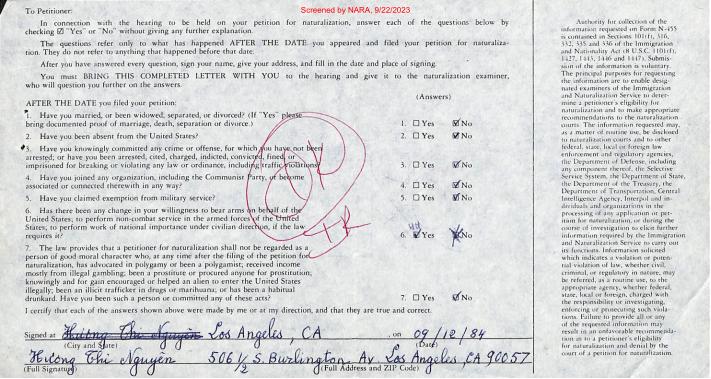 Screened by NARA, 9/22/2023
To Petitioner:
In connection with the hearing to be held on your petition for naturalization, answer each of the questions below by
checking ☑ "Yes" or "No" without giving any further explanation.
The questions refer only to what has happened AFTER THE DATE you appeared and filed your petition for naturaliza-
tion. They do not refer to anything that happened before that date.
After you have answered every question, sign your name, give your address, and fill in the date and place of signing.
You must BRING THIS COMPLETED LETTER WITH YOU to the hearing and give it to the naturalization examiner,
who will question you further on the answers.
AFTER THE DATE you filed your petition: (Answers)
1. Have you married, or been widowed, separated, or divorced? (If "Yes" please
bring documented proof of marriage, death, separation or divorce.) 1. ☐ Yes ☑ No
2. Have you been absent from the United States? 2. ☐ Yes ☑ No
3. Have you knowingly committed any crime or offense, for which you have not been
arrested; or have you been arrested, cited, charged, indicted, convicted, fined, or
imprisoned for breaking or violating any law or ordinance, including traffic violations? 3. ☐ Yes ☑ No
4. Have you joined any organization, including the Communist Party, or become
associated or connected therewith in any way? 4. ☐ Yes ☑ No
5. Have you claimed exemption from military service? 5. ☐ Yes ☑ No
6. Has there been any change in your willingness to bear arms on behalf of the
United States; to perform non-combat service in the armed forces of the United
States; to perform work of national importance under civilian direction, if the law
requires it? 6. ☑ Yes No
7. The law provides that a petitioner for naturalization shall not be regarded as a
person of good moral character who, at any time after the filing of the petition for
naturalization, has advocated in polygamy or been a polygamist; received income
mostly from illegal gambling; been a prostitute or procured anyone for prostitution;
knowingly and for gain encouraged or helped an alien to enter the United States
illegally; been an illicit trafficker in drugs or marihuana; or has been a habitual
drunkard. Have you been such a person or committed any of these acts? 7. ☐ Yes ☑ No
I certify that each of the answers shown above were made by me or at my direction, and that they are true and correct.
Signed at Hương Thi Nguyên Los Angeles, CA, on 09/12/84
(City and State) (Date)
Hương Thi Nguyên 506 1/2 S. Burlington Av. Los Angeles, CA 90057
(Full Signature) (Full Address and ZIP Code)
Authority for collection of the
information requested on Form N-455
is contained in Sections 101(f), 316,
332, 335 and 336 of the Immigration
and Nationality Act (8 U.S.C. 1101(f),
1427, 1443, 1446 and 1447). Submis-
sion of the information is voluntary.
The principal purposes for requesting
the information are to enable desig-
nated examiners of the Immigration
and Naturalization Service to deter-
mine a petitioner's eligibility for
naturalization and to make appropriate
recommendations to the naturalization
courts. The information requested may,
as a matter of routine use, be disclosed
to naturalization courts and to other
federal, state, local or foreign law
enforcement and regulatory agencies,
the Department of Defense, including
any component thereof, the Selective
Service System, the Department of State,
the Department of the Treasury, the
Department of Transportation, Central
Intelligence Agency, Interpol and in-
dividuals and organizations in the
processing of any application or pet-
ition for naturalization, or during the
course of investigation to elicit further
information required by the Immigration
and Naturalization Service to carry out
its functions. Information solicited
which indicates a violation or poten-
tial violation of law, whether civil,
criminal, or regulatory in nature, may
be referred, as a routine use, to the
appropriate agency, whether federal,
state, local or foreign, charged with
the responsibility of investigating,
enforcing or prosecuting such viola-
tions. Failure to provide all or any
of the requested information may
result in an unfavorable recommenda-
tion as to a petitioner's eligibility
for naturalization and denial by the
court of a petition for naturalization.